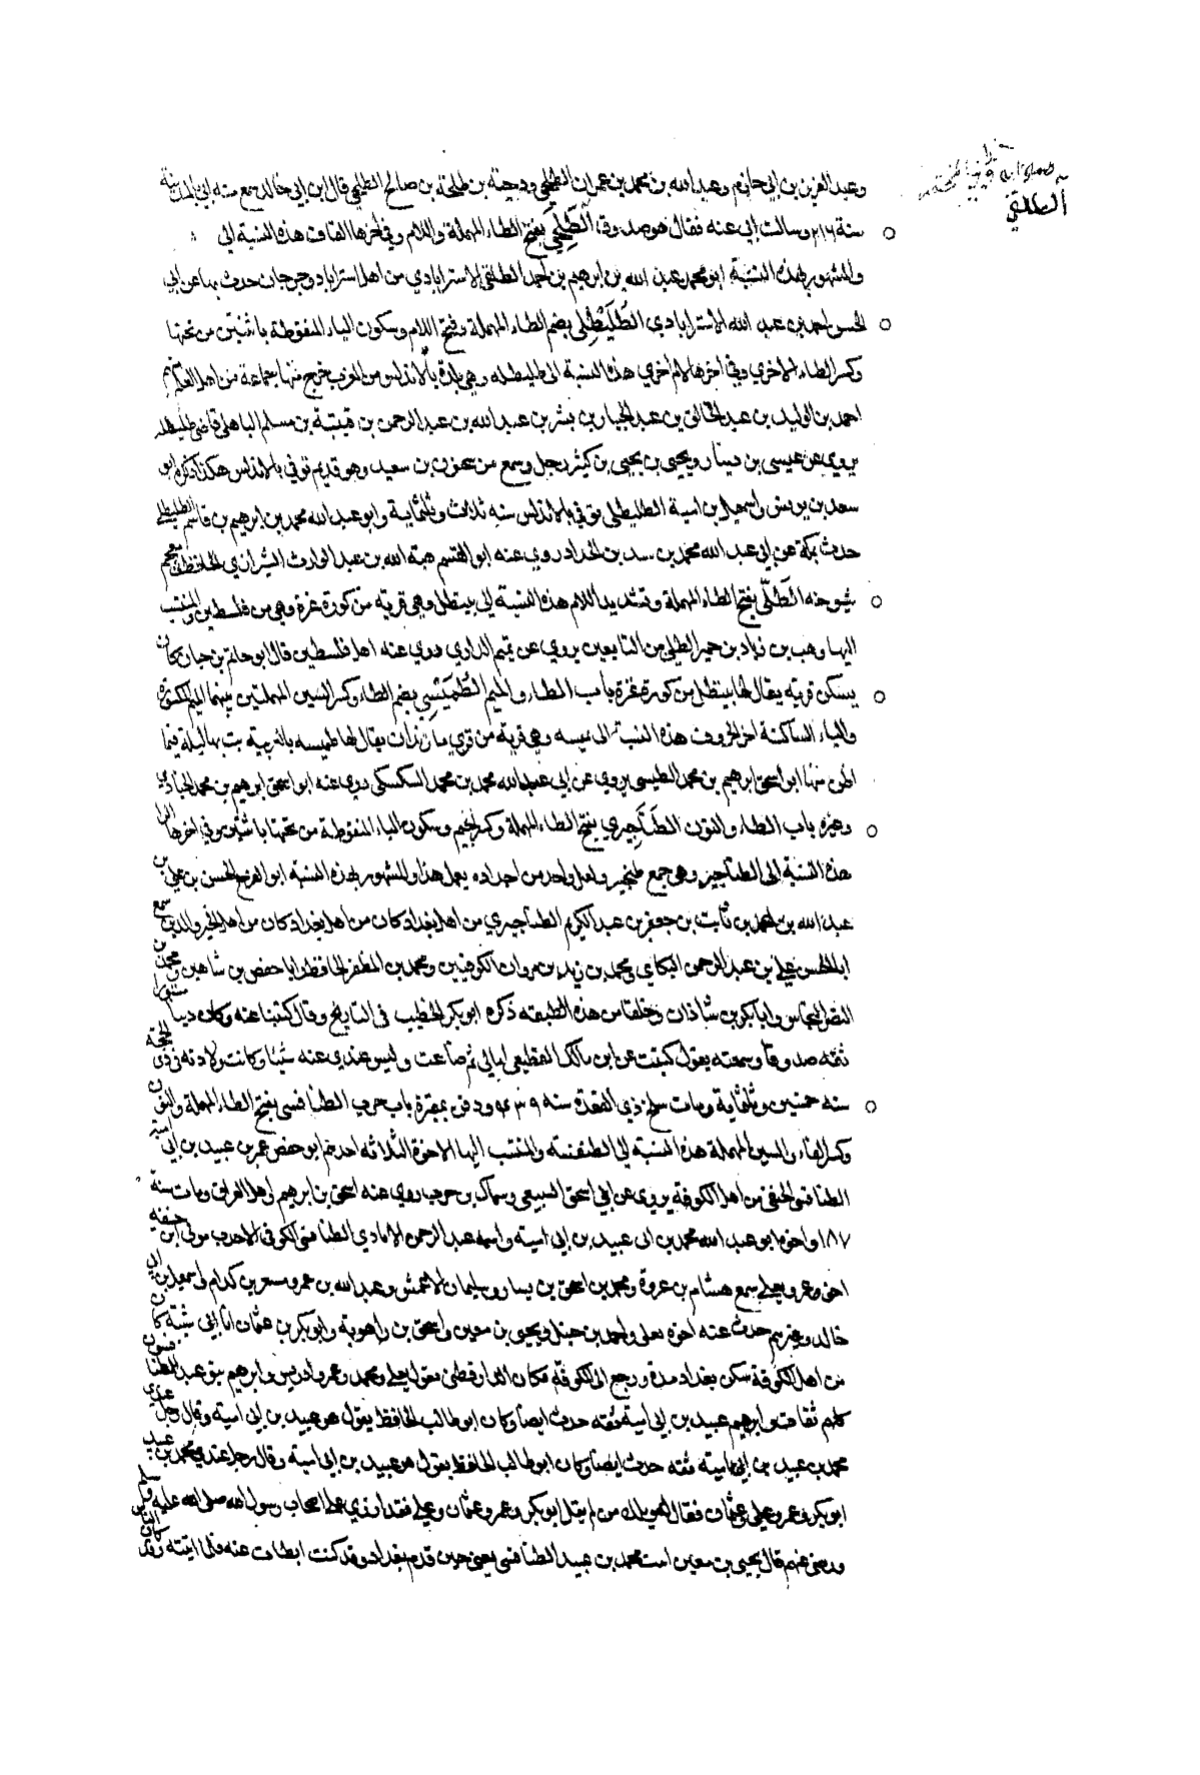 الطلقي
وعبد العزيز بن ابي حازم وعبد الله بن محمد بن عمران الطلحي ودحيه بن طلحة بن صالح الطلحي قال ابن ابي خالد سمع منه ابي بالمدينة
سنة ٢١٦ وسالت ابي عنه فقال هو صدوق الطلقي بفتح الطاء المهملة واللام وفي اخرها القاف هذه النسبة الى
والمشهور بهذه النسبة ابو محمد عبد الله بن ابرهيم بن احمد الطلقي الاسترابادي من اهل استراباد وجرجان حدث بها عن ابي
الحسن احمد بن عبد الله الاسترابادي الطليطلي بضم الطاء المهملة وفتح اللام وسكون الياء المنقوطة باثنتين من تحتها
وكسر الطاء الاخري وفي اخرها لام اخري هذه النسبة الى طليطله وهي بلدة بالاندلس من المغرب خرج منها جماعة من اهل العلم منهم
احمد بن الوليد بن عبد الخالق بن عبد الجبار بن بشر بن عبد الله بن عبد الرحمن بن قتيبة بن مسلم الباهلي قاضي طليطله
يروي عن عيسى بن دينار ويحيى بن يحيى بن كثير رجل وسمع من سحنون بن سعيد وهو قديم توفي بالاندلس هكذا ذكره ابو
سعد بن يونس واسمعيل بن امية الطليطلي توفي بالاندلس سنه ثلاث وثلثماية وابو عبد الله محمد بن ابرهيم بن قاسم الطليطلي
حدث بمكة عن ابي عبد الله محمد بن الحداد روي عنه ابو القسم هبة الله بن عبد الوارث الشيرازي الحافظ في معجم
شيوخه الطلي بفتح الطاء المهملة وتشديد اللام هذه النسبة الى بيتطل وهي قريه من كورة غزة وهي من فلسطين والمنتسب
اليها وهب بن زياد بن حمير الطلي من التابعين يروي عن تميم الداري روي عنه اهل فلسطين قال ابو حاتم بن حبان كان
يسكن قريه يقال لها بيتطل من كورة غزة باب الطاء والميم الطميسي بضم الطاء وكسر السين المهملتين بينهما الميم المكسورة
والياء الساكنة اخر الحروف هذه النسبة الى طميسه وهي قرية من قري مازندران يقال لها طميسه بت بها ليلة فيما
اظن منها ابو اسحق ابرهيم بن محمد الطميسي يروي عن ابي عبد الله محمد بن محمد السكسكي روي عنه ابو اسحق ابرهيم بن محمد
وغيره باب الطاء والنون الطناجيري بفتح الطاء المهملة وكسر الجيم وسكون الياء المنقوطة من تحتها باثنتين وفي اخرها الرا
هذه النسبة الى الطناجير وهي جمع طنجير ولعل واحد من اجداده يعمل هذا والمشهور بهذه النسبة ابو الفرج الحسن بن علي بن
عبد الله بن احمد بن ثابت بن جعفر بن عبد الكريم الطناجيري من اهل بغداد كان من اهل بغداد كان من اهل الخير والدين سمع
ابا الحسن علي بن عبد الرحمن البكاي ومحمد بن زيد بن مروان الكوفيين ومحمد بن المظفر الحافظ وابا حفص بن شاهين ومحمد بن
النضر النخاس وابا بكر بن شاذان وخلقا من هذه الطبقه ذكره ابو بكر الخطيب في التاريخ وقال كتبنا عنه وكان دينا مستورا
ثقه صدوقا وسمعته يقول كتبت عن ابن مالك القطيعي امالي ثم ضاعت وليس عندي عنه شيئا وكانت ولادته في ذي الحجة
سنه خمسين وثلثماية ومات سلخ ذي القعدة سنه ٤٣٩ ودفن بمقبرة باب حرب الطنافسي بفتح الطاء المهملة والنون
وكسر الفاء والسين المهملة هذه النسبة الى الطنفسة والمنتسب اليها الاخوة الثلاثه احدهم ابو حفص عمر بن عبيد بن ابي امية
الطنافسي الحنفي من اهل الكوفة يروي عن ابي اسحق السبيعي وسماك بن حرب روي عنه اسحق بن ابرهيم واهل العراق ومات سنة
١٨٧ واخوه ابو عبد الله محمد بن ابي عبيد بن ابي امية واسمه عبد الرحمن الايادي الطنافسي الكوفي الاحدب مولى ابن حنيفه
اخو عمر ويعلي سمع هشام بن عروة ومحمد بن اسحق بن يسار وسليمان الاعمش وعبد الله بن عمر ومسعر بن كدام واسمعيل بن ابي
خالد وغيرهم حدث عنه اخوه يعلى واحمد بن حنبل ويحيى بن معين واسحق بن راهويه وابو بكر بن عثمان انا ابي شيبة كان
من اهل الكوفة سكن بغداد مدة ورجع الى الكوفة فكان الدارقطني يقول يعلي ومحمد وعمر وادريس وابرهيم بنو عبيد الطنافسيون
كلهم ثقات وابرهيم عبيد بن ابي امية ثقه حدث ايضا وكان ابو طالب الحافظ يقول هو عبيد بن ابي امية وقال رجل عندي
محمد بن عبيد بن ابي امية ثقه حدث ايضا وكان ابو طالب الحافظ يقول هو عبيد بن ابي امية وقال رجل عندي محمد بن عبيد
ابو بكر وعمر وعلي وعثمان فقال له ويلك من لم يقل ابو بكر وعمر وعثمان وعلي فقد ازري على اصحاب رسول الله صلى الله عليه وسلم
ورضي عنهم قال يحيى بن معين اتيت محمد بن عبيد الطنافسي يعني حين قدم بغداد وقد كنت ابطات عنه فلما اتيته